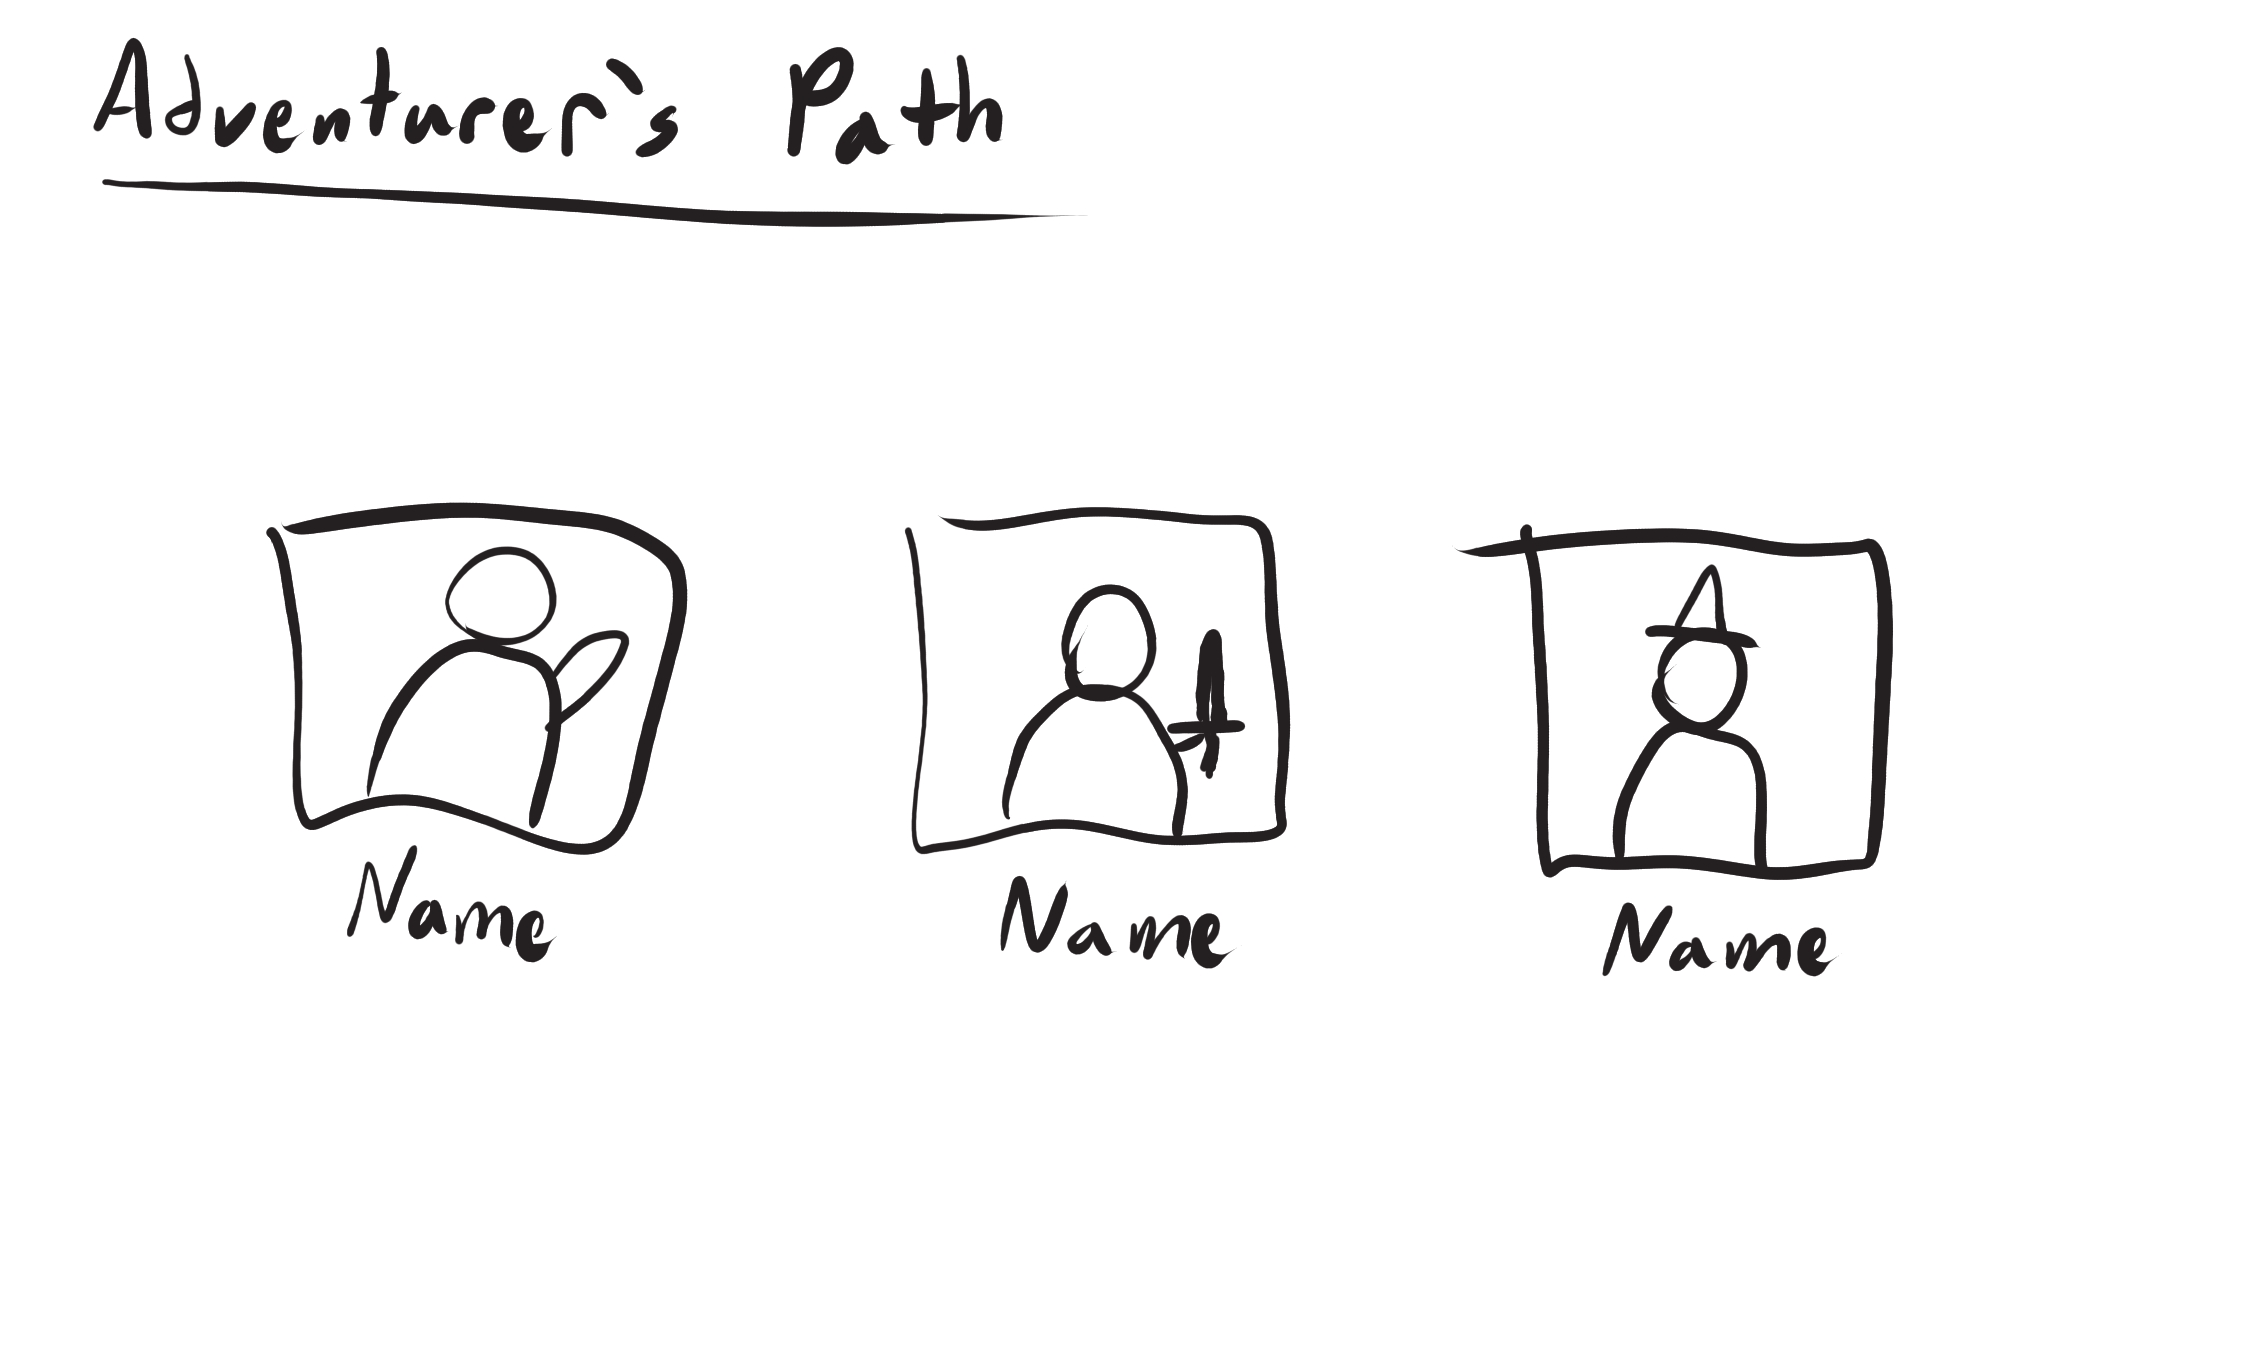 Adventurer's Path
Name
Name
Name